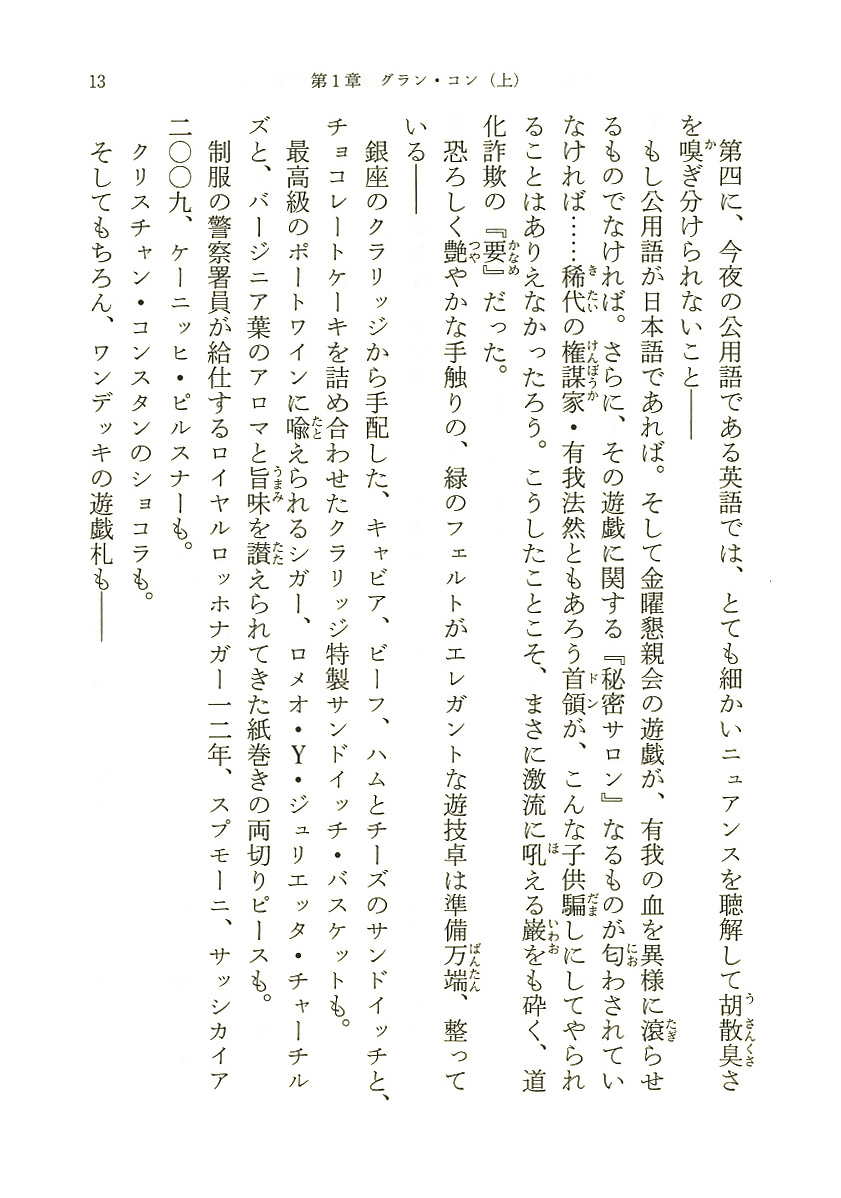 13
第1章 グラン・コン（上）
第四に、今夜の公用語である英語では、とても細かいニュアンスを聴解して胡散臭さ
を嗅ぎ分けられないこと――
もし公用語が日本語であれば。そして金曜懇親会の遊戯が、有我の血を異様に滾らせ
るものでなければ。さらに、その遊戯に関する『秘密サロン』なるものが匂わされてい
なければ……稀代の権謀家・有我法然ともあろう首領が、こんな子供騙しにしてやられ
ることはありえなかったろう。こうしたことこそ、まさに激流に吼える巌をも砕く、道
化詐欺の『要』だった。
恐ろしく艶やかな手触りの、緑のフェルトがエレガントな遊技卓は準備万端、整って
いる――
銀座のクラリッジから手配した、キャビア、ビーフ、ハムとチーズのサンドイッチと、
チョコレートケーキを詰め合わせたクラリッジ特製サンドイッチ・バスケットも。
最高級のポートワインに喩えられるシガー、ロメオ・Y・ジュリエッタ・チャーチル
ズと、バージニア葉のアロマと旨味を讃えられてきた紙巻きの両切りピースも。
制服の警察署員が給仕するロイヤルロッホナガー一二年、スプモーニ、サッシカイア
二〇〇九、ケーニッヒ・ピルスナーも。
クリスチャン・コンスタンのショコラも。
そしてもちろん、ワンデッキの遊戯札も――